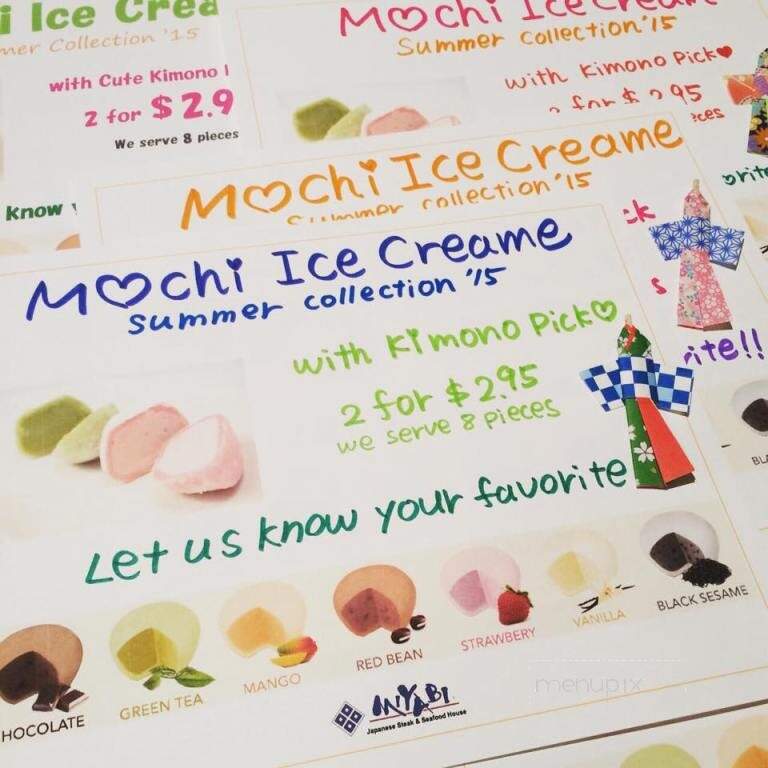 i Ice Crea
mer Collection '15
with Cute Kimono
2 for $2.9
We serve 8 pieces
Know
Mochi Ice
Summer Collection '15
with Kimono Pick♥
2 for $2.95
ces
orite
Mochi Ice Creame
Summer collection '15
ck
s
rite!!
BLA
Mochi Ice Creame
Summer collection '15
with Kimono Pick♡
2 for $2.95
we serve 8 pieces
Let us know your favorite
HOCOLATE
GREEN TEA
MANGO
RED BEAN
STRAWBERY
VANILLA
BLACK SESAME
MIYABI
Japanese Steak & Seafood House
menupix